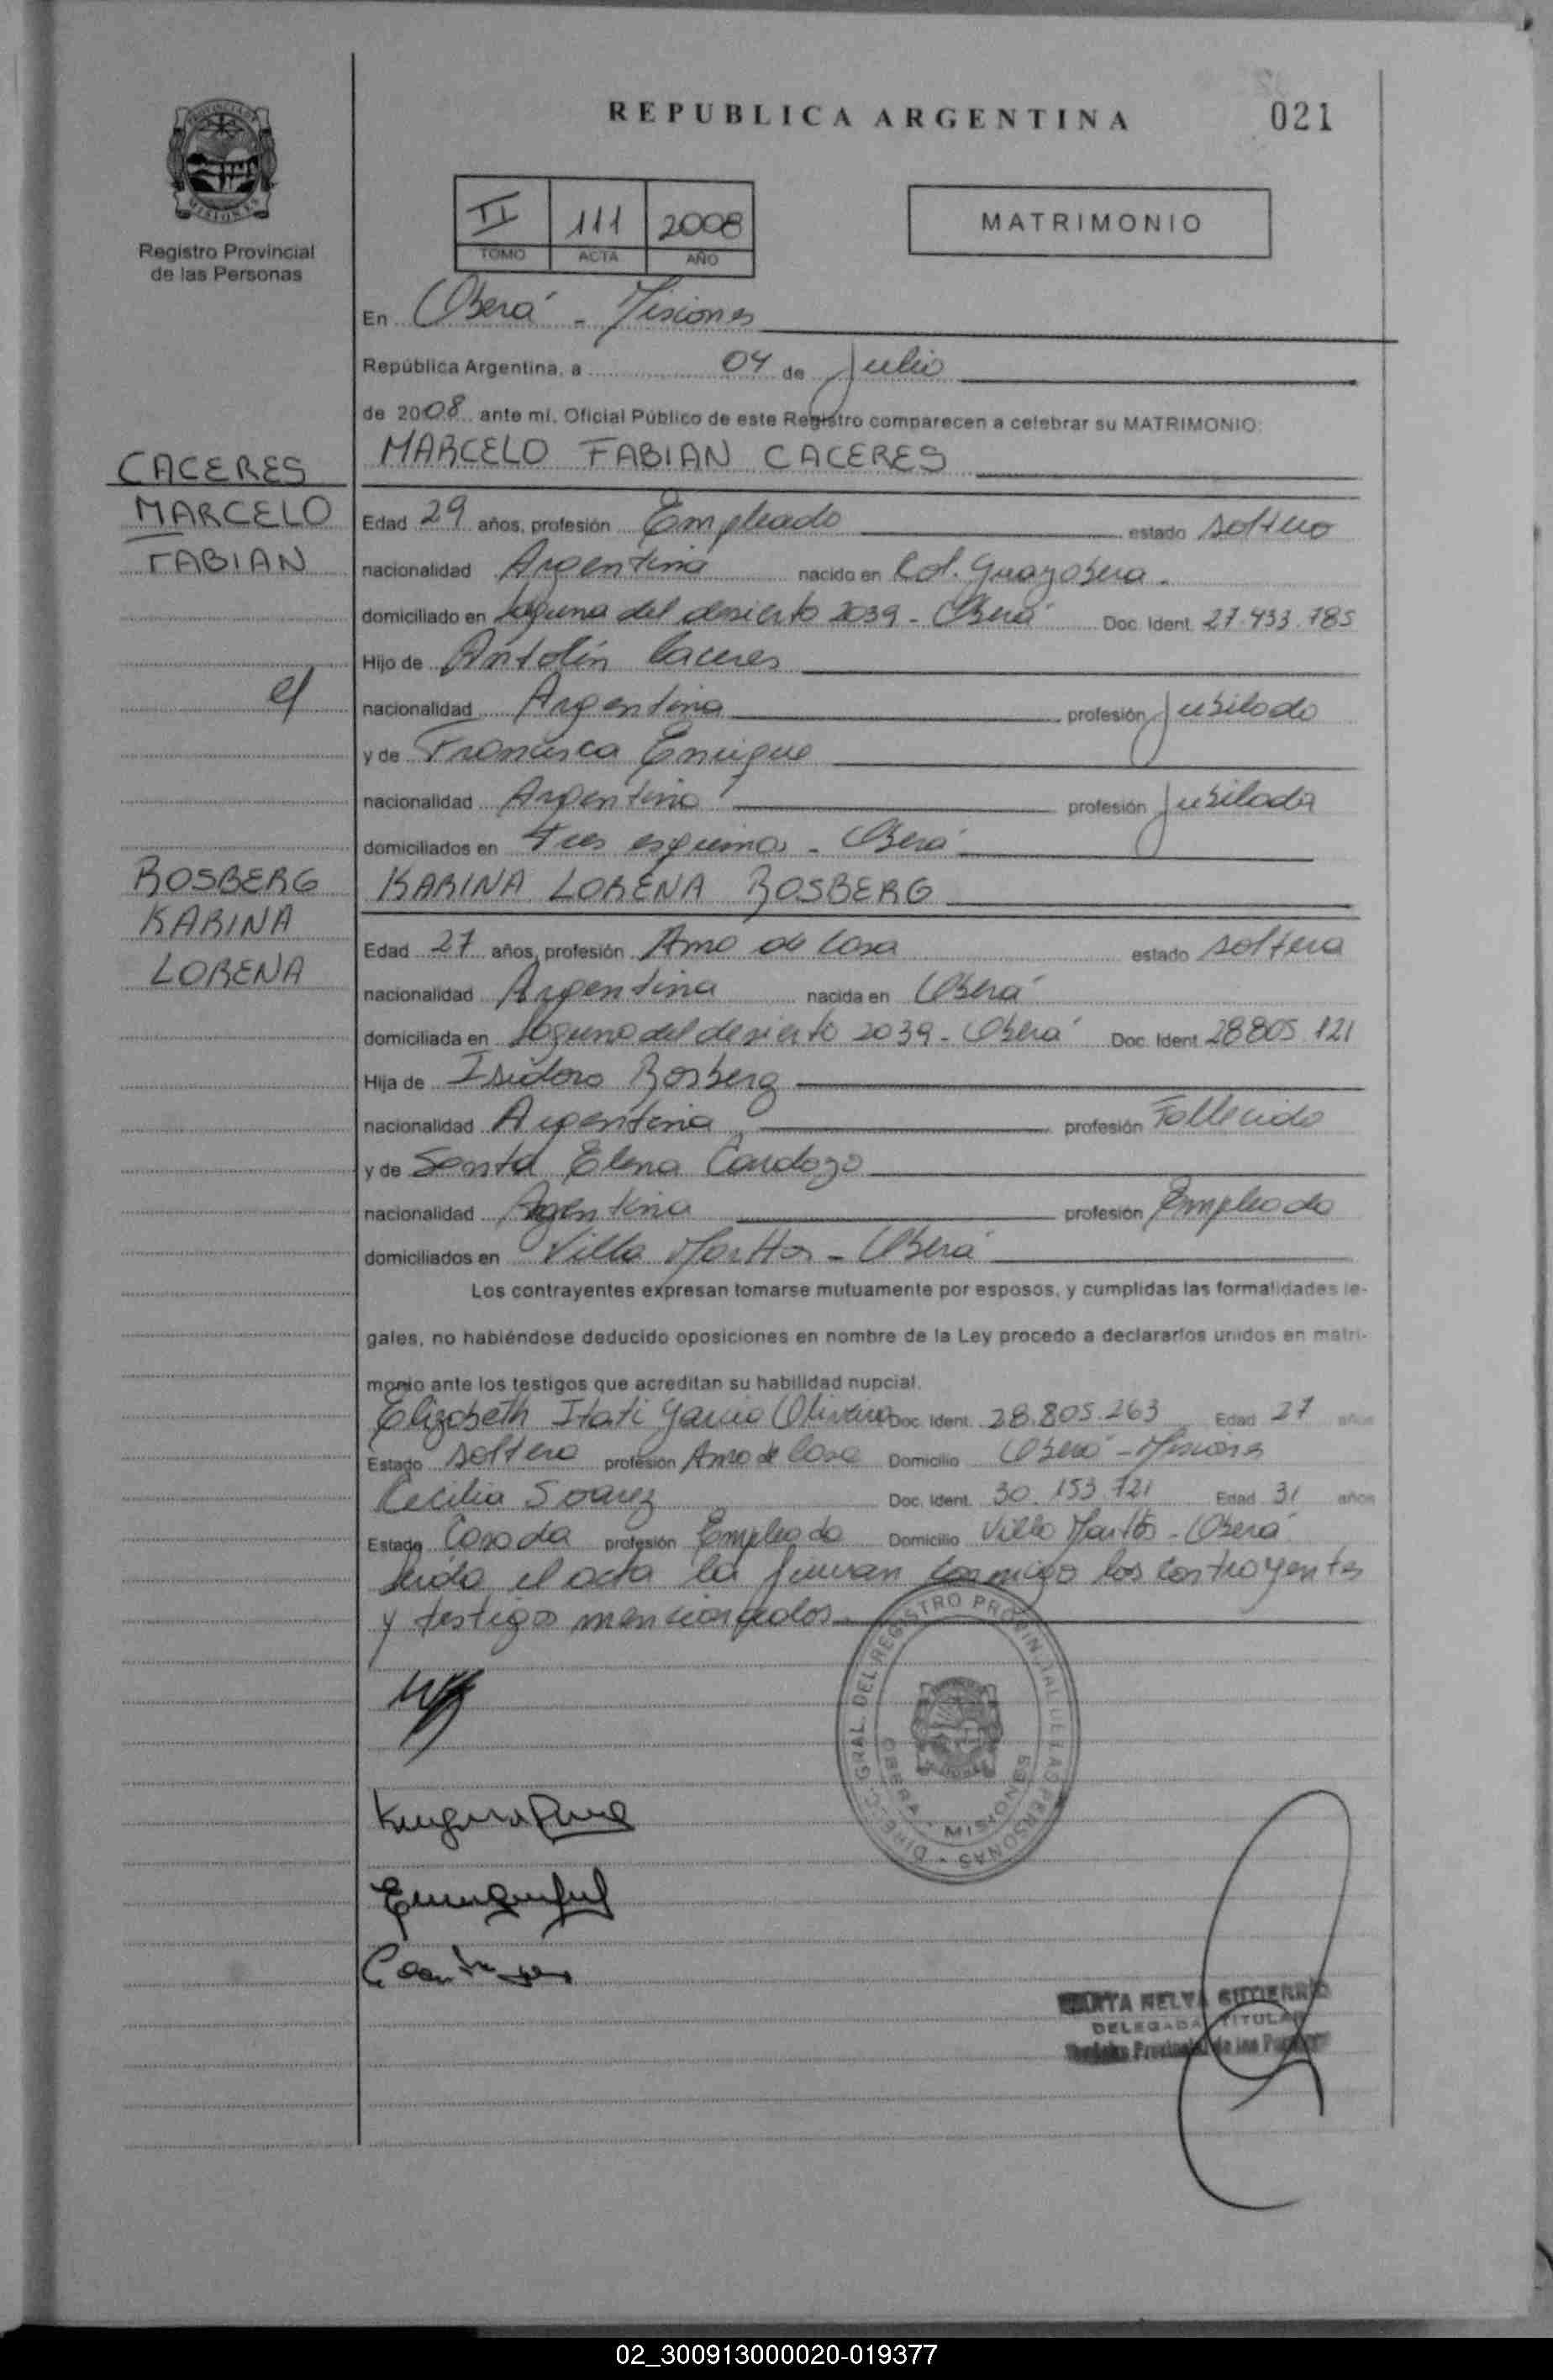 REPUBLICA ARGENTINA
021
PROVINCIA DE MISIONES
Registro Provincial
de las Personas
II 111 2008
TOMO ACTA AÑO
MATRIMONIO
En Oberá - Misiones
República Argentina, a 04 de Julio
de 2008 ante mí, Oficial Público de este Registro comparecen a celebrar su MATRIMONIO:
CACERES
MARCELO
FABIAN
MARCELO FABIAN CACERES
Edad 29 años, profesión Empleado estado soltero
nacionalidad Argentina nacido en Col. Guayabera.
domiciliado en Laguna del desierto 2039 - Oberá Doc. Ident. 27.433.785
Hijo de Antolín Caceres
nacionalidad Argentina profesión Jubilado
y de Francisca Enrique
nacionalidad Argentina profesión Jubilada
domiciliados en Tres esquinas - Oberá
ROSBERG
KARINA
LORENA
KARINA LORENA ROSBERG
Edad 27 años, profesión Ama de Casa estado soltera
nacionalidad Argentina nacida en Oberá
domiciliada en Laguna del desierto 2039 - Oberá Doc. Ident. 28805.121
Hija de Isidoro Rosberg
nacionalidad Argentina profesión Fallecido
y de Santa Elena Cardozo
nacionalidad Argentina profesión Empleada
domiciliados en Villa Martos - Oberá
Los contrayentes expresan tomarse mutuamente por esposos, y cumplidas las formalidades le-
gales, no habiéndose deducido oposiciones en nombre de la Ley procedo a declararlos unidos en matri-
monio ante los testigos que acreditan su habilidad nupcial.
Elizabeth Itati Garcia Oliveira Doc. Ident. 28.805.263 Edad 27 años
Estado soltera profesión Ama de Casa Domicilio Oberá - Misiones
Cecilia Soarez Doc. Ident. 30.153.721 Edad 31 años
Estado Casada profesión Empleada Domicilio Villa Martos - Oberá
Leída el acta la firman conmigo los contrayentes
y testigos mencionados
DIREC. GRAL. DEL REGISTRO PROVINCIAL DE LAS PERSONAS
OBERA - MISIONES
DELEGADA TITULAR
02_300913000020-019377